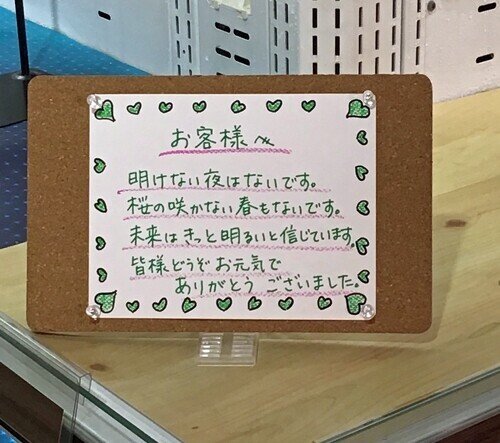 お客様へ
明けない夜はないです。
桜の咲かない春もないです。
未来はきっと明るいと信じています。
皆様どうぞお元気で
ありがとうございました。